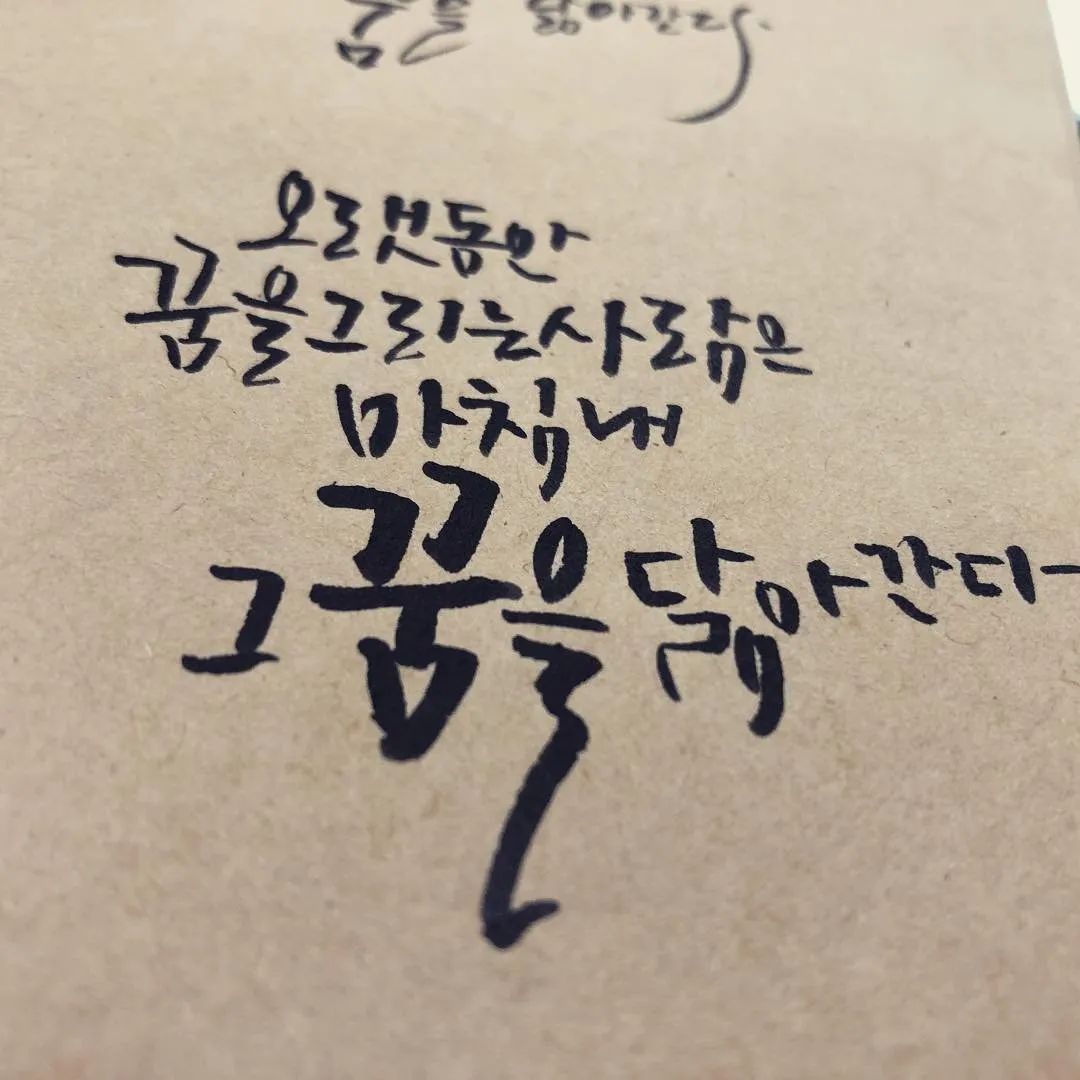 꿈을 닮아간다.
오랫동안
꿈을그리는사람은
마침내
그꿈을닮아간다